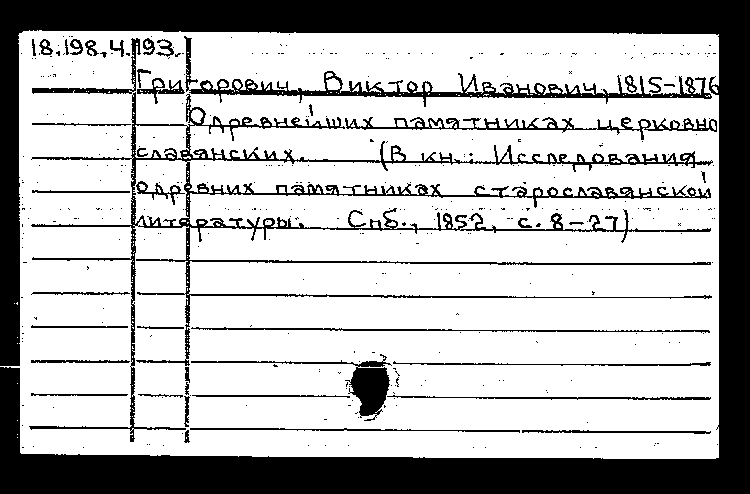 18.198.4.193.
Григорович, Виктор Иванович, 1815-1876
Одревнейших памятниках церковно
славянских. (В кн.: Исследования
одревних памятниках старославянской
литературы. Спб., 1852, с. 8-27)